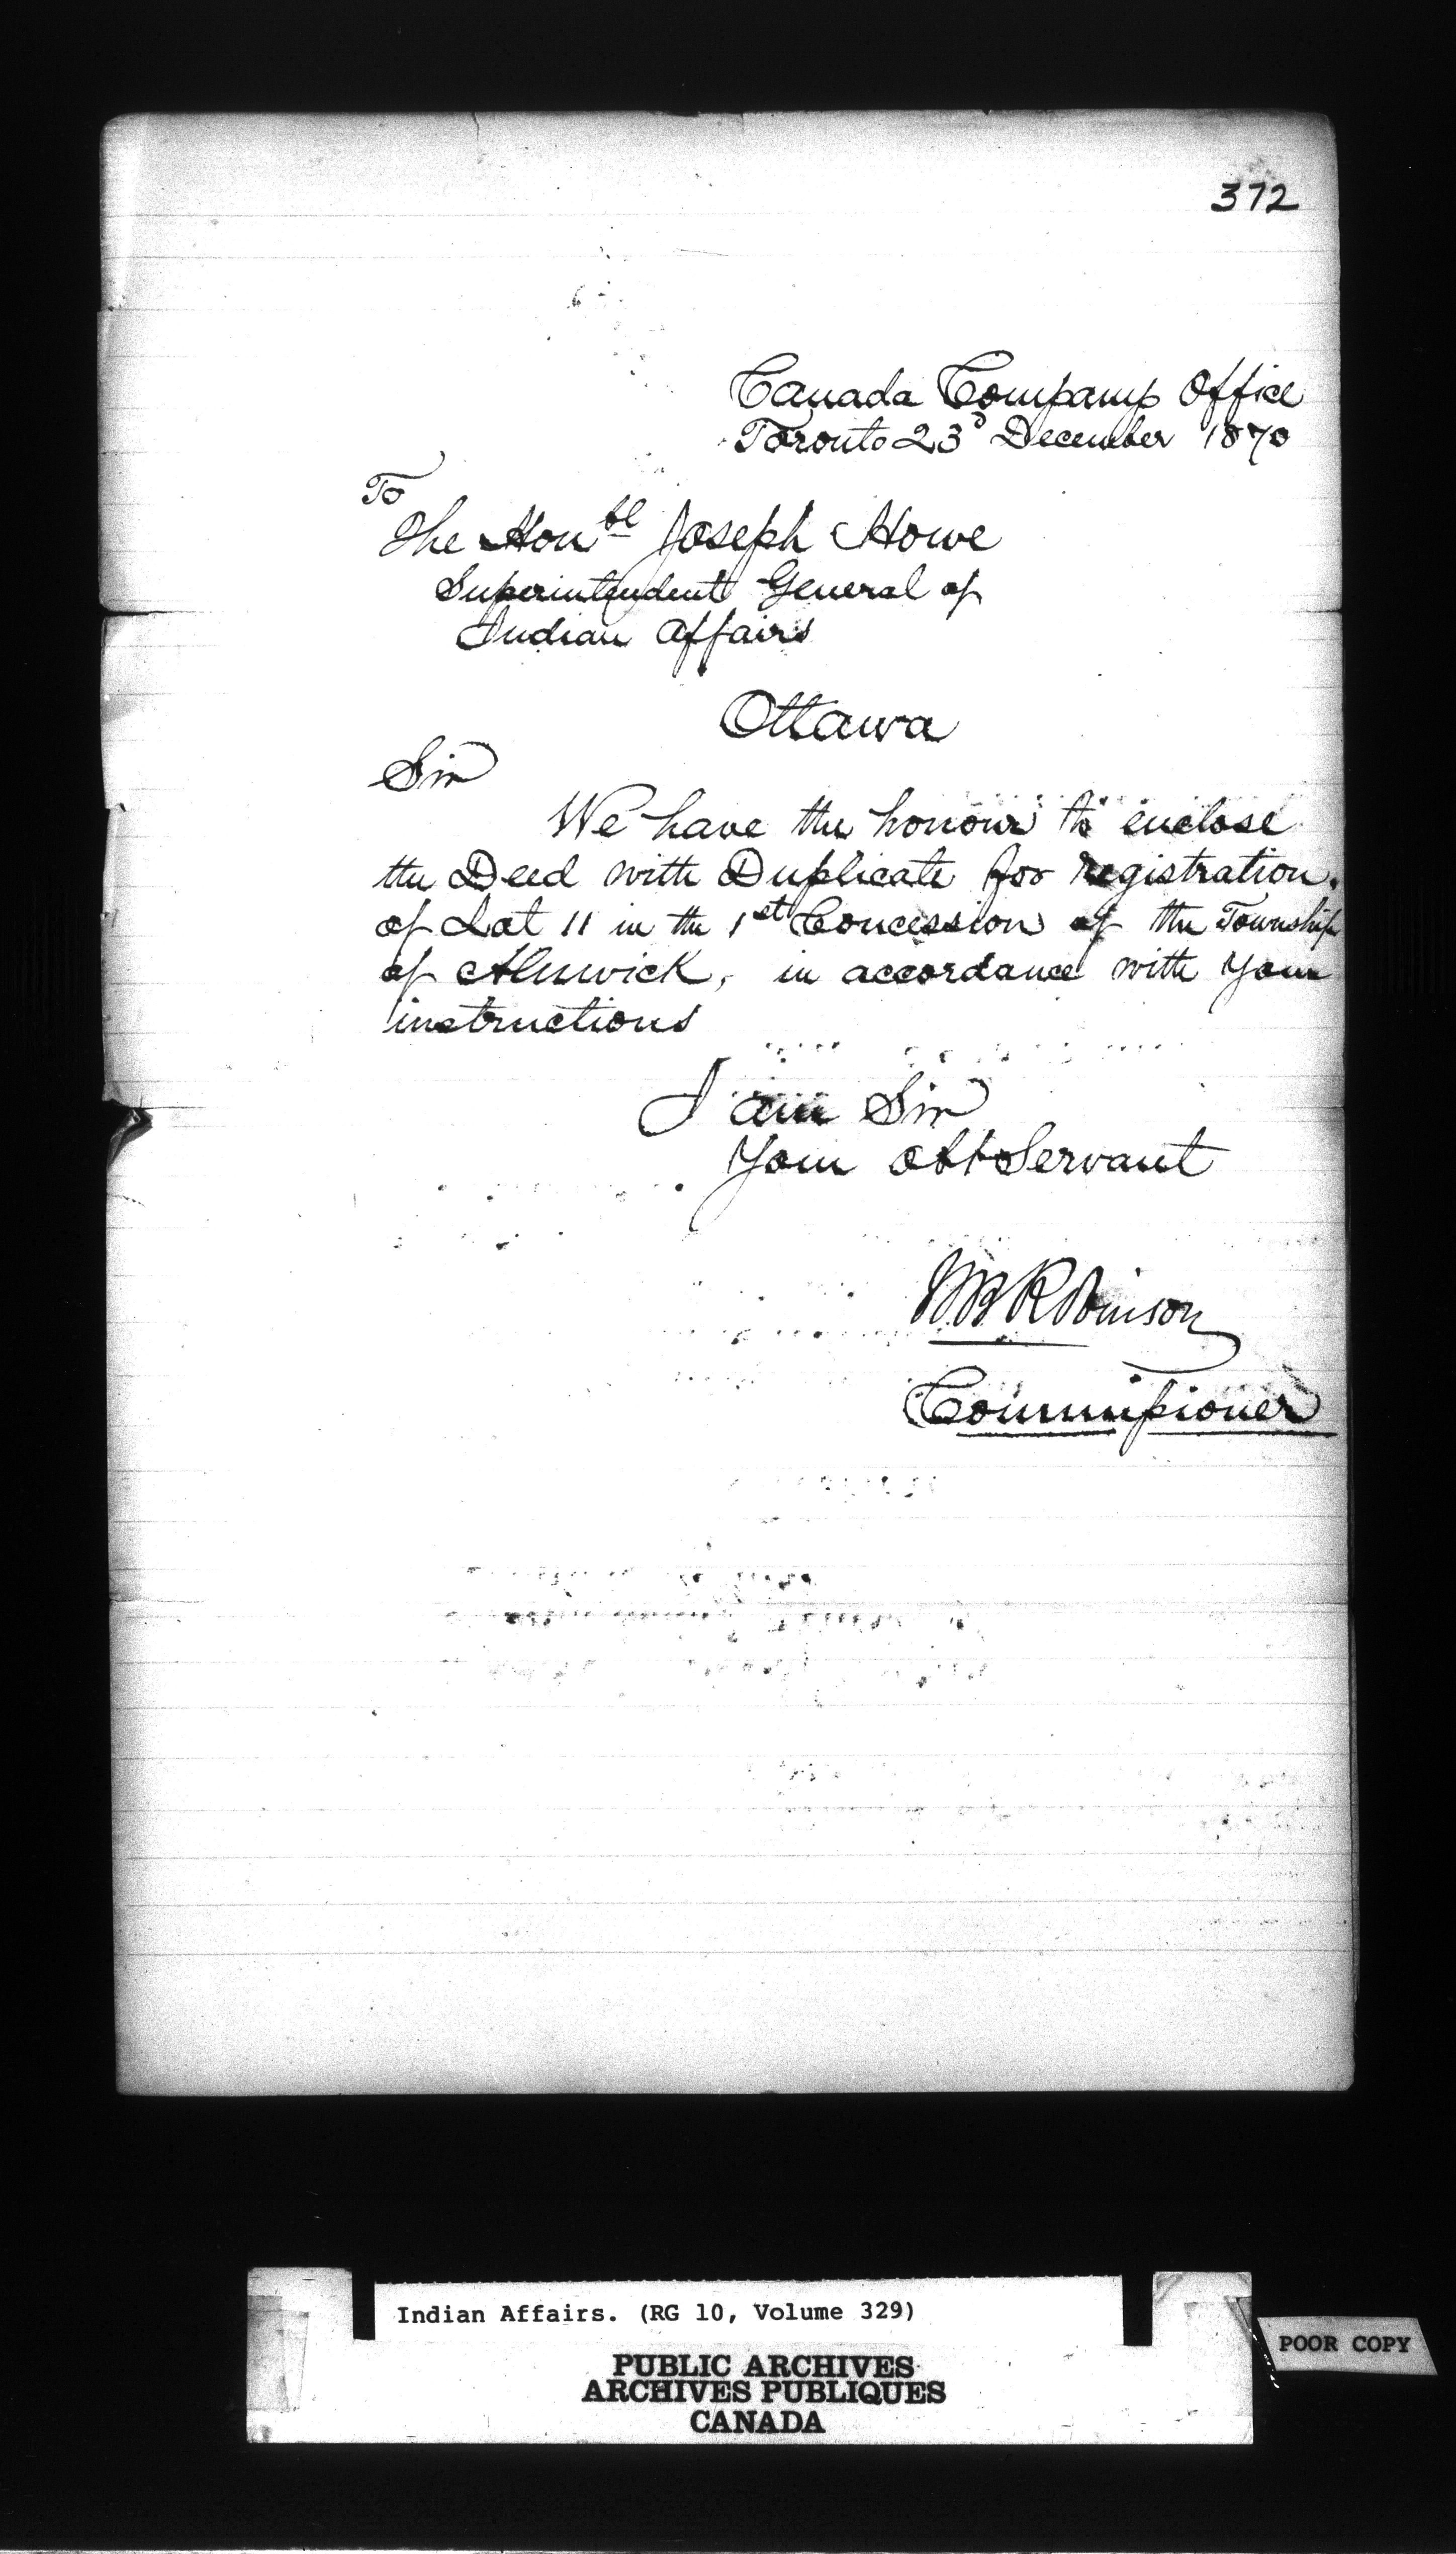 372
Canada Company Office
Toronto 23d December 1870
To
The Honble Joseph Howe
Superintendent General of
Indian Affairs
Ottawa
Sir
We have the honour to enclose
the Deed with Duplicate for registration.
of Lot 11 in the 1st Concession of the Township
of Alnwick, in accordance with your
instructions
I am Sir
Your obt Servant
WB Robinson
Commissioner
Indian Affairs. (RG 10, Volume 329)
PUBLIC ARCHIVES
ARCHIVES PUBLIQUES
CANADA
POOR COPY